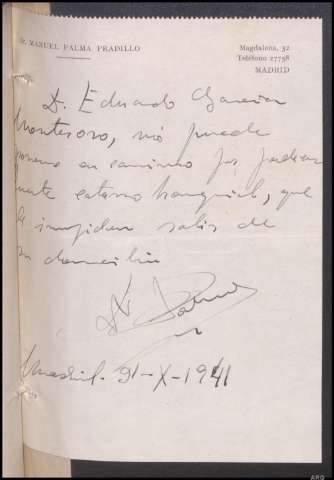 Dr. MANUEL PALMA PRADILLO
Magdalena, 32
Teléfono 27758
MADRID
D. Eduardo Garcia
Montesoro, no puede
ponerse en camino por padecer
catarro bronquial, que
le impiden salir de
su domicilio
Dr Palma
Madrid - 31-X-1941
ARD